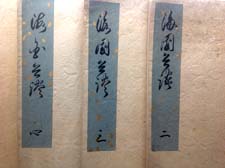 海國兵談 二
海國兵談 三
海国兵談 四